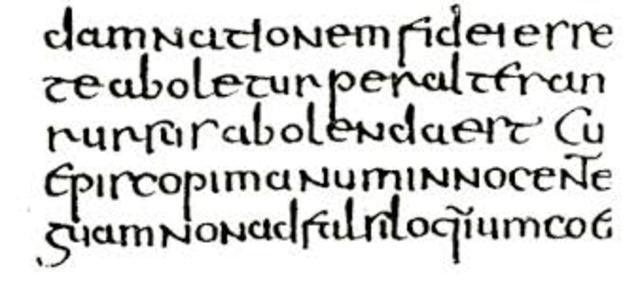 damnationem fidei esse
te aboletur per alteran
rursus abolenda est Cu
episcopi manum innocentē
guam non ad falsiloq̃ium coe